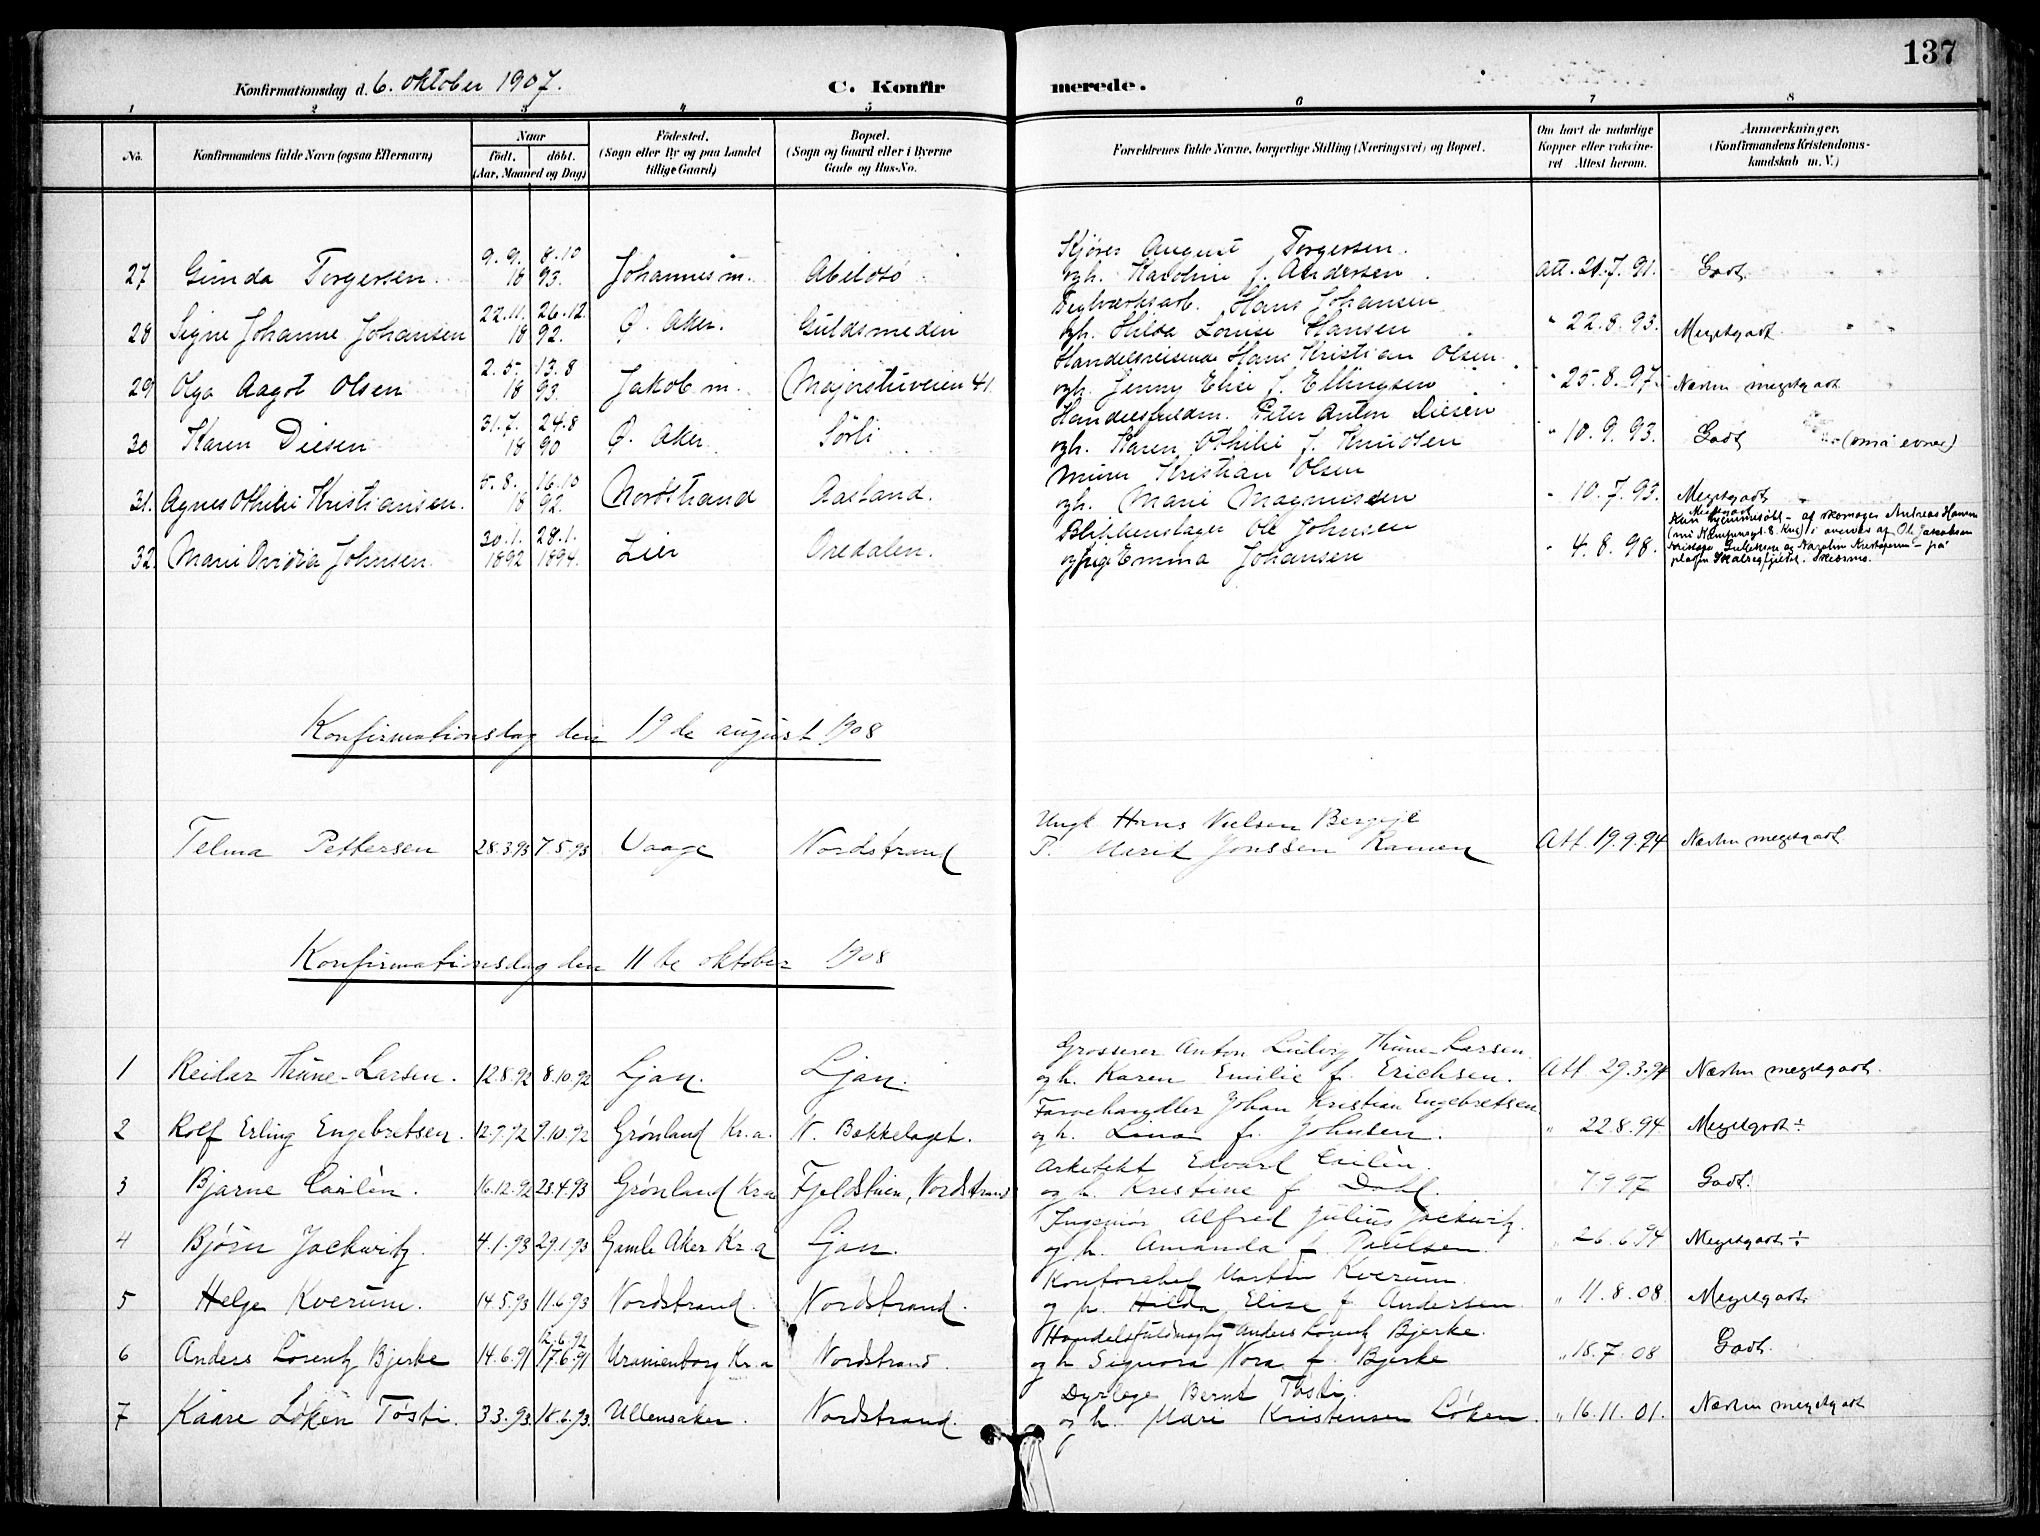 137
Konfirmationsdag d. 6. oktober 1907.
C. Konfirmerede.
1 2 3 4 5 6 7 8
No. Konfirmandens fulde Navn (ogsaa Efternavn) Naar født. døbt. (Aar, Maaned og Dag) Fødested. (Sogn eller By og paa Landet tillige Gaard) Bopæl. (Sogn og Gaard eller i Byerne Gade og Hus-No. Forældrenes fulde Navne, borgerlige Stilling (Næringsvei) og Bopæl. Om havt de naturlige Kopper eller vakcineret Attest herom. Anmærkninger, (Konfirmandens Kristendomskundskab m. V.)
9.9. 8.10 Kjører August Torgersen.
27 Gunda Torgersen. 18 93. Johannes m. Abildsö ogh. Karoline f. Andersen Att. 21.7.91. Godt
22.11. 26.12. Teglværksarb. Hans Johansen
28 Signe Johanne Johansen 18 92. Ø. Aker. Guldsmeden ogh. Hilda Lovise Hansen " 22.8.93. Megetgodt
2.5. 13.8 Handelsreisende Hans Kristian Olsen
29 Olga Aagot Olsen 18 93. Jakob m. Majorstuveien 41. ogh. Jenny Elise f. Ellingsen " 25.8.97. Næsten megetgodt
31.7. 24.8 Handelsfuldm. Peter Anton Diesen
30 Karen Diesen 18 90 Ø. Aker. Sörli ogh. Karen Othilie f. Knudsen " 10.9.93. Godt (små evner)
5.8. 16.10 Murer Kristian Olsen
31. Agnes Othilie Kristiansen. 18 92. Nordstrand Aasland. ogh. Marie Magnussen " 10.7.93. Megetgodt
30.1. 28.1. Blikkenslager Ole Johnsen Megetgodt
32. Marie Ovidia Johnsen. 1892 1894. Lier Oredalen. og pige Emma Johansen " 4.8.98. Kun hjemmedöbt - af skomager Andreas Hansen
i nærvær af Ole Jacobsen
på
Konfirmationsdag den 19de august 1908
Ungk Hans Nielsen
Telma Pettersen 28.3.93 7.5.93 Vaage Nordstrand P. Marit Jonssen Ramen Att 19.9.94 Næsten megetgodt
Konfirmationsdag den 11te oktober 1908
Grosserer Anton Ludvig Thüne-Larsen
1 Reidar Thüne-Larsen. 12.8.92 8.10.92 Ljan. Ljan. ogh. Karen Emilie f. Erichsen. Att 29.3.94 Næsten megetgodt.
Farvehandler Johan Kristian Engebretsen
2 Rolf Erling Engebretsen. 12.7.92 9.10.92 Grønland Kr.a. N. Bekkelaget. ogh. Lina f. Johnsen. " 22.8.94 Megetgodt ÷
Arkitekt Edvard Carlén.
3 Bjarne Carlén. 16.12.92 23.4.93 Grønland Kr.a Fjeldstuen, Nordstrand og h. Kristine f. Dahl. 7997 Godt.
Ingeniør Alfred Julius Jackwitz.
4 Bjørn Jackwitz. 4.1.93 29.1.93 Gamle Aker Kr.a Ljan. og h. Amanda f. Paulsen. " 26.6.94 Megetgodt ÷
Kontorchef Martin Kverum.
5 Helge Kverum. 14.5.93 11.6.93 Nordstrand. Nordstrand. og h. Hilda Elise f. Andersen. " 11.8.08 Megetgodt
12.6.92 Handelsfuldmægtig Anders Lorentz Bjerke.
6 Anders Lorentz Bjerke 14.6.91 17.6.91 Uranienborg Kr.a Nordstrand. og h Signora Nora f. Bjerke " 18.7.08 Godt.
Dyrlæge Bernt Tøsti.
7 Kaare Løken Tøsti. 3.3.93. 18.6.93. Ullensaker. Nordstrand. og h. Mare Kristensen Løken. " 16.11.01. Næsten megetgodt